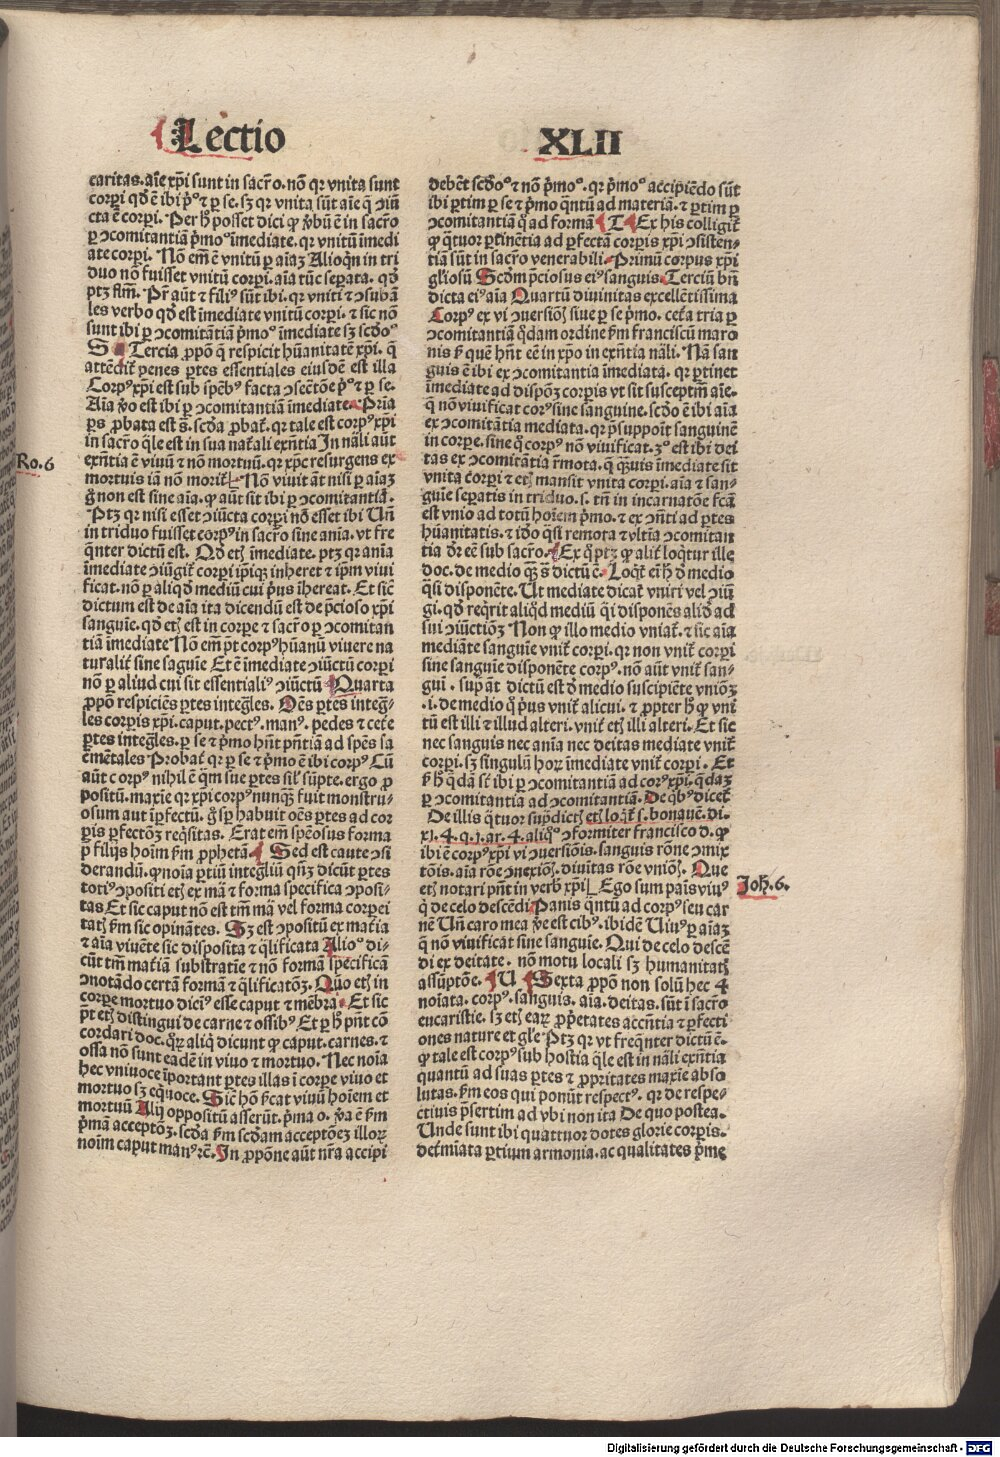 Lectio
XLII
caritas. aīe xp̄i sunt in sacr̄o. nō qr vnita sunt
corꝑi qd ē ibi p̄ꝰ ⁊ ꝑ se. sꝫ qr vnita sūt aīe q̄ ↄiū
cta ē corꝑi. Per hꝰ posset dici ꝙ v̄bū ē in sacr̄o
ꝑ ↄcomitantiā p̄moꝰ īmediate. qr vnitū īmedi
ate corꝑi. Nō em̄ ē vnitū ꝑ aīaꝫ Alioqn̄ in tri
duo nō fuisset vnitū corꝑi. aīa tūc seꝑata. qd̄
ptꝫ flm̄. Pr̄ aūt ⁊ filiꝰ sūt ibi. qr vniti ⁊ ↄsubā
les verbo qd̄ est īmediate vnitū corꝑi. ⁊ sic nō
sunt ibi ꝑ ↄcomitātiā p̄moꝰ īmediate sꝫ sc̄doꝰ
S Tercia ꝓpō q̄ respicit hūanitatē xp̄i. q̄
attēdit̄ penes ꝑtes essentiales eiusdē est illa
Corpꝰ xp̄i est sub spēbꝰ facta ↄsecr̄tōe p̄ꝰ ⁊ ꝑ se.
Aīa v̄o est ibi ꝑ ↄcomitantiā īmediate. Pr̄ia
ꝑs ꝓbata est s̄. sc̄da ꝓbat̄. qr tale est corpꝰ xp̄i
in sacr̄o q̄le est in sua nat̄ali exn̄tia In nāli aūt
exn̄tia ē viuū ⁊ nō mortuū. qr xp̄c resurgens ex
Ro. 6
mortuis iā nō morit̄ Nō viuit āt nisi ꝑ aīaꝫ
g̊ non est sine aīa. ꝙ aūt sit ibi ꝑ ↄcomitantiā.
Ptꝫ qr nisi esset ↄiūcta corꝑi nō esset ibi Un̄
in triduo fuisset corpꝰ in sacr̄o sine anīa. vt fre
q̄nter dictū est. Qd̄ etꝫ īmediate. ptꝫ qr anīa
īmediate ↄiūgit̄ corꝑi ip̄iqꝫ inheret ⁊ ip̄m viui
ficat. nō ꝑ aliqd̄ mediū cui p̄us īhereat. Et sic̄
dictum est de aīa ita dicendū est de p̄cioso xp̄i
sanguīe. qd̄ etꝫ est in corpe ⁊ sacr̄o ꝑ ↄcomitan
tiā īmediate Nō em̄ pt corpꝰ hūanū viuere na
turalit̄ sine sāguīe Et ē īmediate ↄiūctū corꝑi
nō ꝑ aliud cui sit essentialiꝰ ↄiūctū Quarta
ꝓpō respiciēs ꝑtes integr̄les. Oēs ꝑtes inteḡ-
les corꝑis xp̄i. caput. pectꝰ. manꝰ. pedes ⁊ cet̄e
ꝑtes integr̄les. ꝑ se ⁊ p̄mo hn̄t pn̄tiā ad spēs sa
cm̄ētales Probat̄ qr ꝑ se ⁊ p̄mo ē ibi corpꝰ Cū
aūt corpꝰ nihil ē q̄m sue ꝑtes sil̄ sūpte. ergo ꝓ
positū. maxīe qr xp̄i corpꝰ nunqꝫ fuit monstru-
osum aut īꝑfectū. g̊ sꝑ habuit oēs ꝑtes ad cor
ꝑis ꝑfectōꝫ req̄sitas. Erat em̄ spēosus forma
p̄ filijs hoīm ẜm ꝓphetā. Sed est caute ↄsi
derandū. ꝙ noīa ꝑtiū integr̄liū qn̄ꝫ dicūt ꝑtes
totiꝰ ↄpositi et ex mā ⁊ forma specifica ↄposi-
tas Et sic caput nō est tm̄ mā vel forma corpei
tatꝭ ẜm sic opinātes. Sꝫ est ↄpositū ex mat̄ia
⁊ aīa viuēte sic disposita ⁊ q̄lificata Alioꝰ di-
cūt tm̄ mat̄iā substratīe ⁊ nō formā specificā
ↄnotādo certā formā ⁊ q̄lificatōꝫ. Quo etꝫ in
corpe mortuo diciꝰ esse caput ⁊ mēbra. Et sic
pt etꝫ distingui de carne ⁊ ossibꝰ Et ꝑ hꝰ pn̄t cō
cordari doc. qꝝ aliq̄ dicunt ꝙ caput. carnes. ⁊
ossa nō sunt eadē in viuo ⁊ mortuo. Nec noīa
hec vniuoce īportant ꝑtes illas ī corpe viuo et
mortuo sꝫ eq̄uoce. Sic̄ hō ẜcat viuū hoīem et
mortuū Alij oppositū asserūt. p̄ma o. v̄a ē ẜm
p̄mā acceptōꝫ. sc̄da ẜm sc̄dam acceptōeꝫ illoꝝ
noīm caput manꝰ ⁊c̄. In ꝓpōne aūt nr̄a accipi
debēt sc̄doꝰ ⁊ nō p̄moꝰ. qr p̄moꝰ accipiēdo sūt
ibi ꝑtim ꝑ se ⁊ p̄mo q̄ntū ad materiā. ⁊ ꝑtim ꝑ
ↄcomitantiā q̊ ad formā T Ex his colligit̄
ꝙ q̄tuor ꝑtinētia ad ꝑfectā corꝑis xp̄i ↄsisten-
tiā sūt in sacr̄o venerabili. Primū corpus xp̄i
gl̄iosū Scd̄m p̄ciosus eiꝰ sanguis. Terciū bn̄
dicta eiꝰ aīa Quartū diuinitas excellētissima
Corpꝰ ex vi ↄuersiōꝭ siue ꝑ se p̄mo. cet̄a tria ꝑ
ↄcomitantiā q̄dam ordine ẜm franciscū maro
nis ẜ quē hn̄t eē in xp̄o in exn̄tia nāli. Nā san
guis ē ibi ex ↄcomitantia īmediata. qr ꝑtinet
īmediate ad dispōꝫ corꝑis vt sit susceptm̄ aīe.
q̄ nō viuificat corꝰ sine sanguine. sc̄do ē ibi aīa
ex ↄcomitātia mediata. qr p̄suppōit sanguinē
in corpe. sine q̊ corpꝰ nō viuificat. 3ꝰ est ibi dei
tas ex ↄcomitātia r̄mota. q̄ qꝫuis īmediate sit
vnita corꝑi ⁊ etꝫ mansit vnita corꝑi. aīa ⁊ san-
guīe seꝑatis in triduo. s. tn̄ in incarnatōe fcā
est vnio ad totū hoīem p̄mo. ⁊ ex ↄn̄ti ad ꝑtes
hūanitatis. ⁊ idō q̄si remota ⁊ vltīa ↄcomitan
tia dr̄ eē sub sacr̄o. Ex q̊ ptꝫ ꝙ alit̄ loq̄tur ille
doc. de medio qꝫ s̄ dictū ē. Loqt̄ ei h̄ d̄ medio
q̄si disponēte. Ut mediate dicat̄ vniri vel ↄiū
gi. qd̄ req̄rit aliq̄d mediū q̄i disponēs aliq̄d ad
sui ↄiūctiōꝫ Non ꝙ illo medio vniat̄. ⁊ sic aīa
mediāte sanguīe vnit̄ corꝑi. qr non vnit̄ corꝑi
sine sanguīe disponēte corpꝰ. nō aūt vnit̄ san-
guī. sup̄ āt dictū est d̄ medio suscipiēte vniōꝫ
.i. de medio q̊ p̄us vnit̄ alicui. ⁊ ꝓpter hꝰ ꝙ vni
tū est illi ⁊ illud alteri. vnit̄ etꝫ illi alteri. Et sic
nec sanguis nec anīa nec deitas mediate vnit̄
corꝑi. sꝫ singulū hoꝝ īmediate vnit̄ corꝑi. Et
ẜ hꝰ q̄dā sūt ibi ꝑ ↄcomitantiā ad corꝰ xp̄i. q̄daꝫ
ꝑ ↄcomitantiā ad ↄcomitantiā. De qbꝰ dicet̄
De illis q̄tuor sup̄dictꝭ etꝫ loqt̄ s. bonauē. di.
xj. 4. q. j. ar. 4. aliqꝰ ↄformiter francisco d. ꝙ
ibi ē corpꝰ xp̄i vi ↄuersiōis. sanguis rōne ↄmix
tōis. aīa rōe ↄnexiōꝭ. diuītas rōe vniōꝭ. Que
etꝫ notari pn̄t in verbꝭ xp̄i Ego sum panis viuꝰ
Joh. 6.
q̄ de celo descēdi Panis q̄ntū ad corpꝰ seu car
nē Un̄ caro mea v̄e est cibꝰ. ibidē Uiuꝰ ꝑ aīaꝫ
q̄ nō viuificat sine sanguīe. Qui de celo descē
di ex deitate. nō motu locali sꝫ humanitatꝭ
assūptōe. U Sexta ꝓpō non solū hec 4
noīata. corpꝰ. sanguis. aīa. deitas. sūt ī sacr̄o
eucaristie. sꝫ etꝫ eaꝝ ꝓp̄etates accn̄tia ⁊ ꝑfecti
ones nature et gl̄e Ptꝫ qr vt freq̄nter dictū ē.
ꝙ tale est corpꝰ sub hostia q̄le est in nāli exn̄tia
quantū ad suas ꝑtes ⁊ ꝓpritates maxīe abso
lutas. ẜm eos qui ponūt respectꝰ. qr de respe-
ctiuis p̄sertim ad vbi non ita De quo postea.
Unde sunt ibi quattuor dotes glorie corꝑis.
det̄miata ꝑtium armonia. ac qualitates p̄me
Digitalisierung gefördert durch die Deutsche Forschungsgemeinschaft - DFG